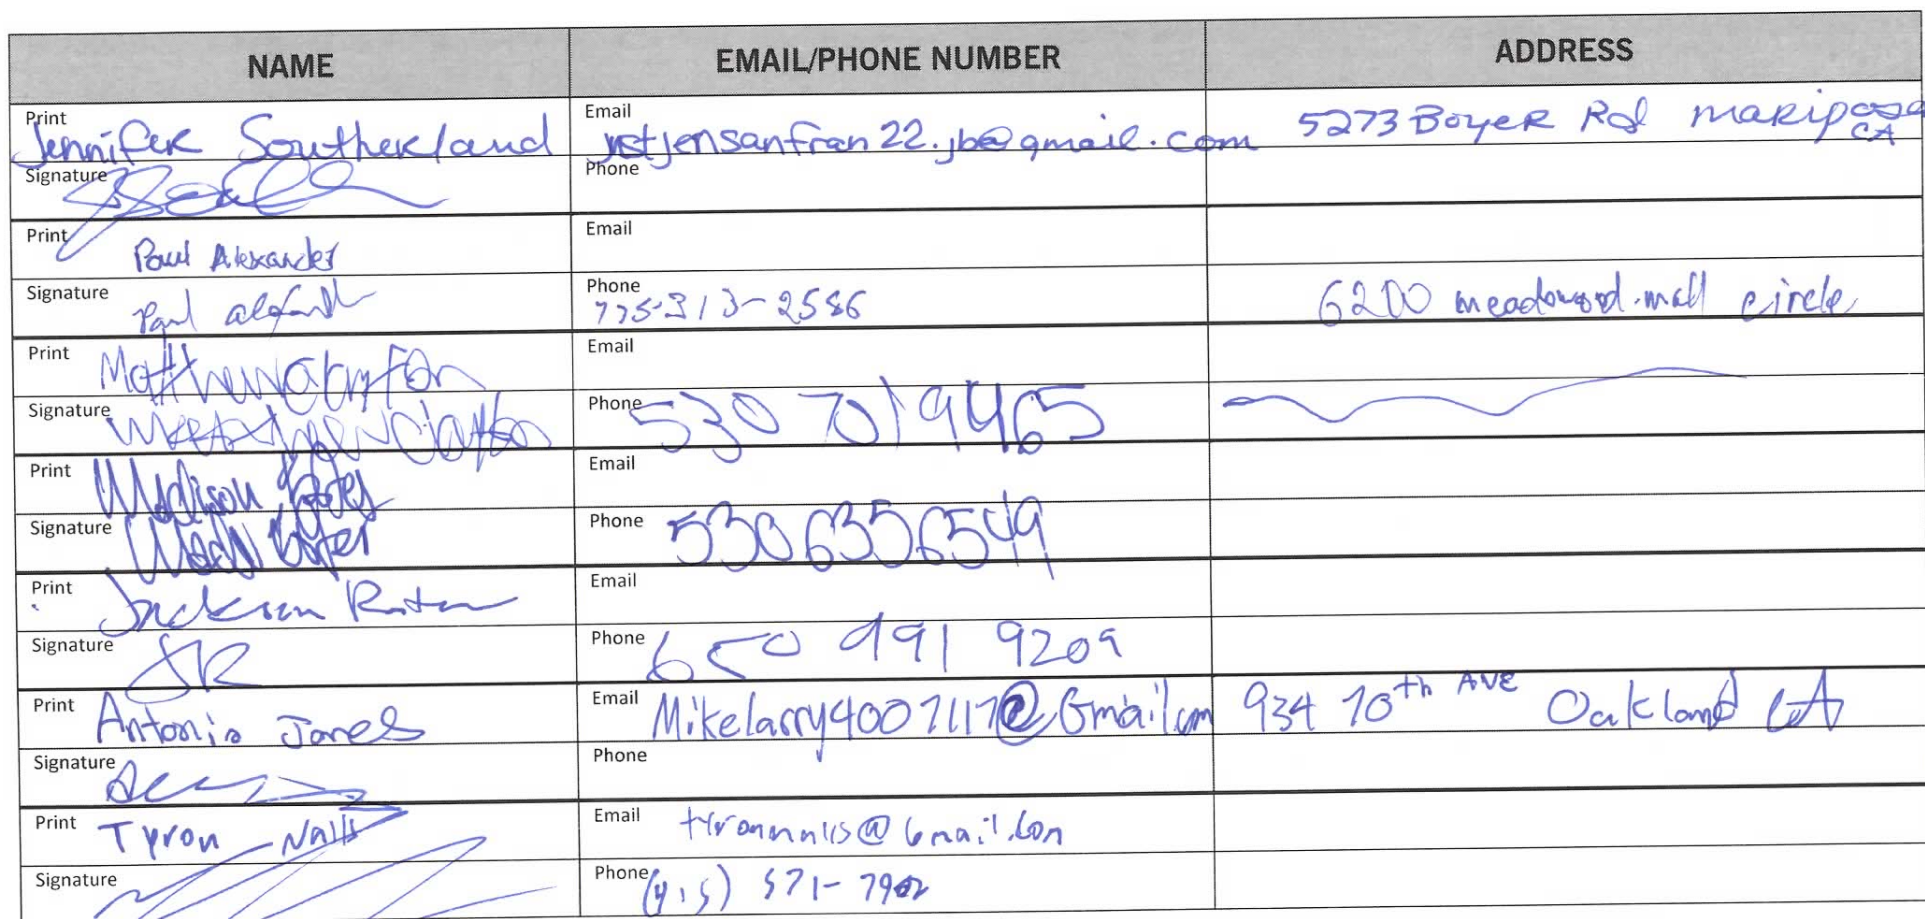 NAME EMAIL/PHONE NUMBER ADDRESS
Print Jennifer Southerland Email jstjensanfran22.jb@gmail.com 5273 Boyer Rd mariposa CA
Signature Phone
Print Paul Alexander Email
Signature Paul Phone 775-313-2586 6200 meadowood mall circle
Print Matthew Clayton Email
Signature Matthew Clayton Phone 530 701 9465
Print Madison Email
Signature Phone 530 635 6549
Print Jackson Email
Signature JR Phone 650 991 9209
Print Antonio Jones Email Mikelarry4007117@Gmail.com 934 70th AVE Oakland CA
Signature Phone
Print Tyron Email
Signature Phone (415) 571-7902